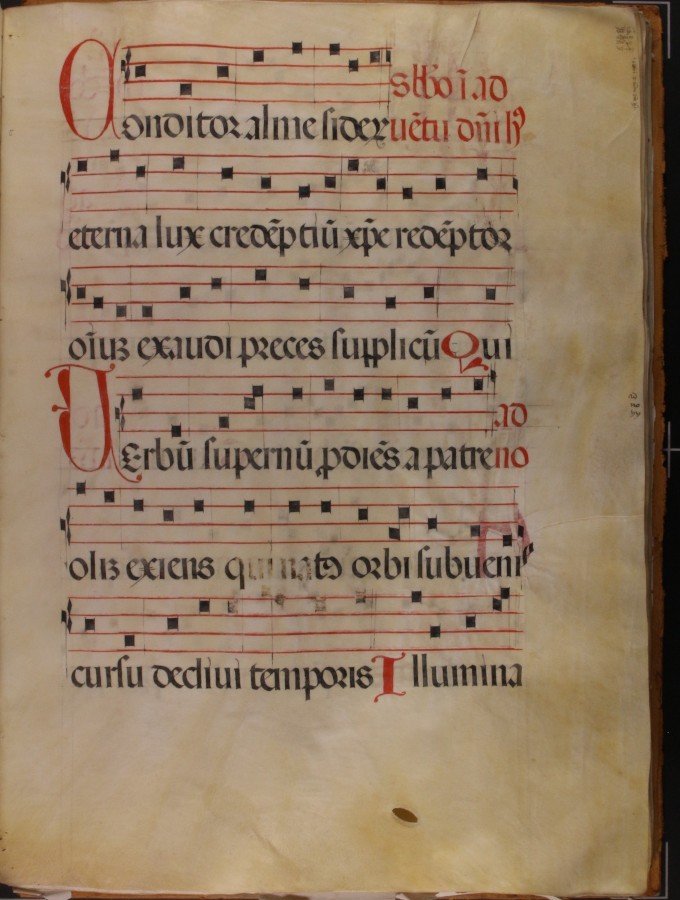 Conditor alme sideꝝ
sbb̄o ī ad
uētu dn̄i hỹ
eterna lux credēptiū xp̄e redēptor
oīuꝫ exaudi preces supplicū Qui
Uerbū supernū ꝓdiēs a patre
ad
no
olīꝫ exiens qui natꝰ orbi subuenis
cursu decliui temporis Illumina